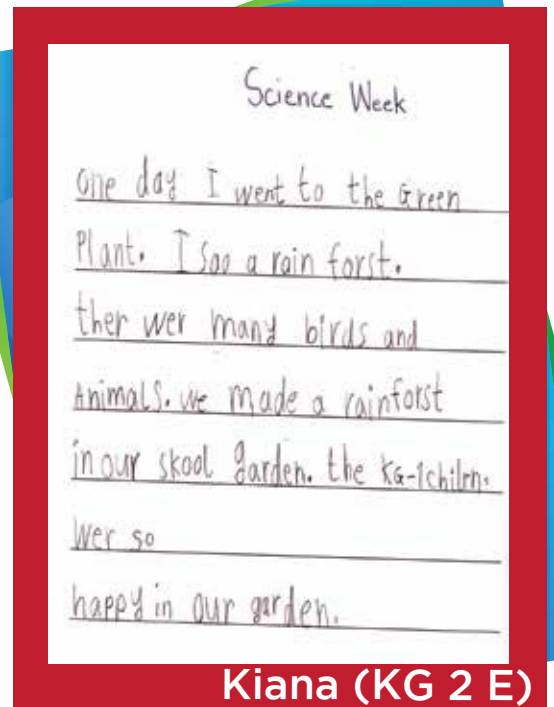 Science Week
One day I went to the Green
Plant. I sao a rain forst.
ther wer many birds and
Animals. we made a rainforst
in our skool garden. the KG-1 chilrn.
wer so
happy in our garden.
Kiana (KG 2 E)